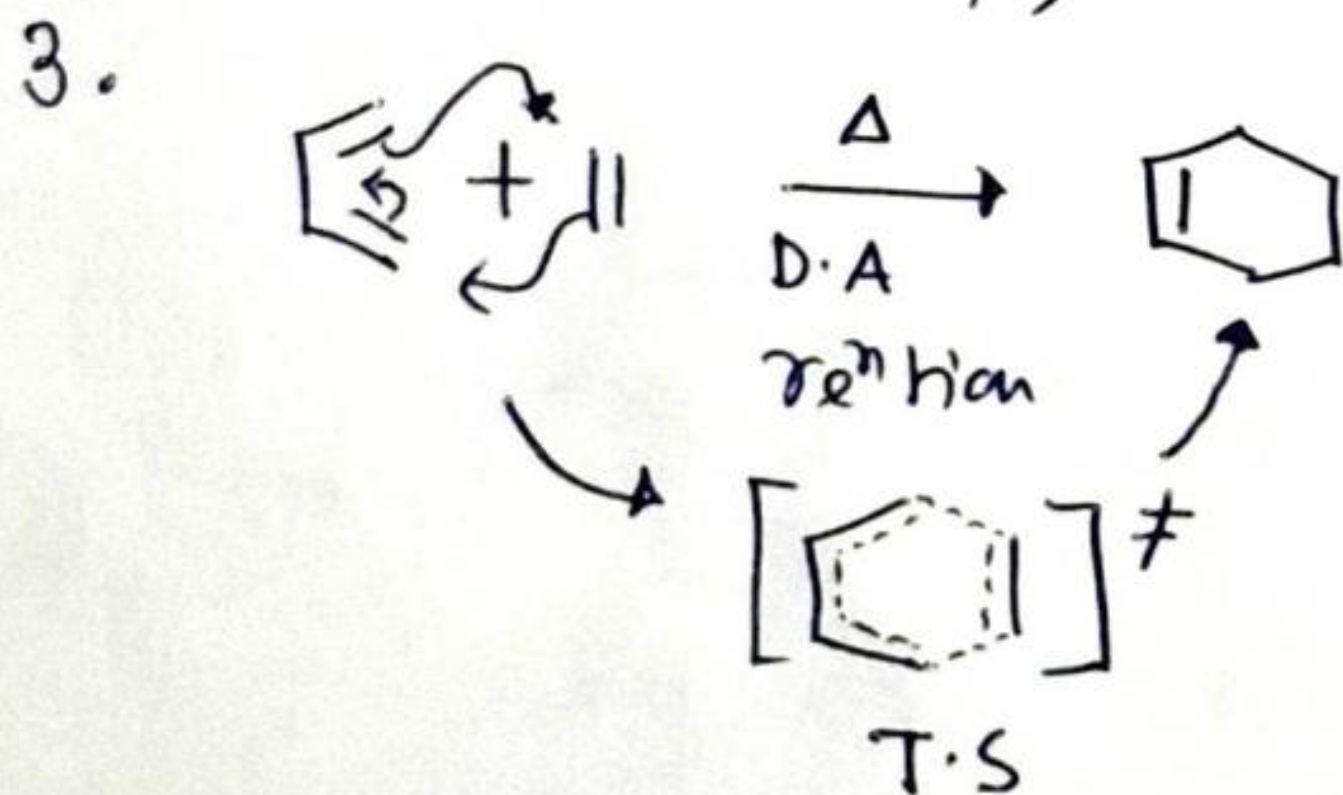 3.
+
Δ
D.A
reⁿ tion
≠
T.S